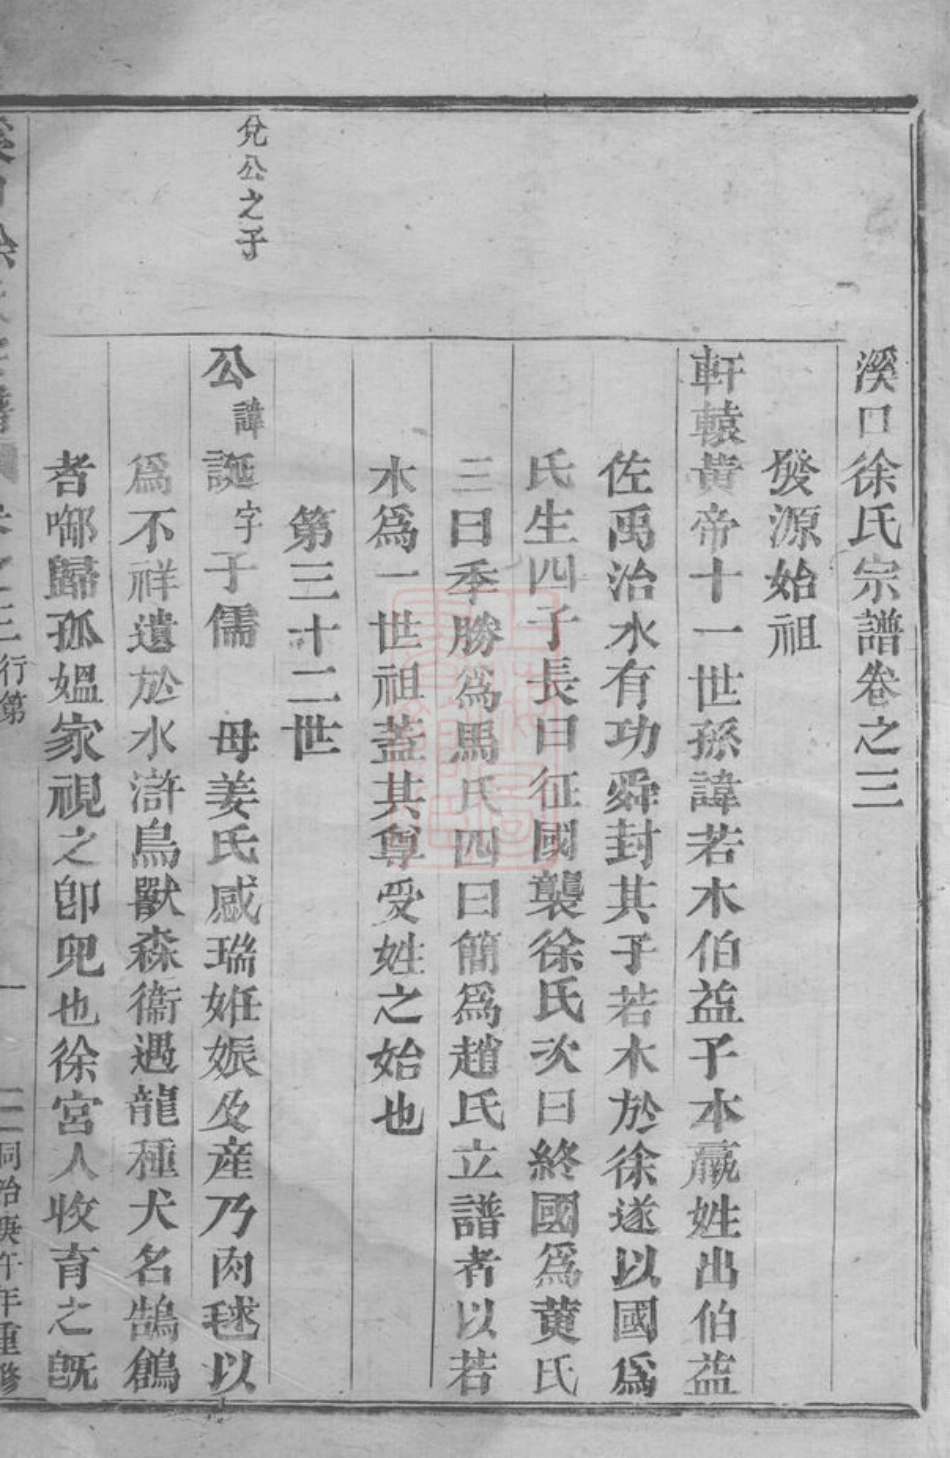 溪口徐氏宗譜卷之三
發源始祖
軒轅黃帝十一世孫諱若木伯益子本嬴姓出伯益
佐禹治水有功舜封其子若木於徐遂以國爲
氏生四子長曰征國襲徐氏次曰終國爲黃氏
三曰季勝爲馬氏四曰簡爲趙氏立譜者以若
木爲一世祖蓋其尊受姓之始也
第三十二世
兌公之子
公諱誕字子儒 母姜氏感瑞姙娠及產乃肉毬以
爲不祥遺於水滸鳥獸森衞遇龍種犬名鵠鶬
者啣歸孤媼家視之卽兒也徐宮人收育之旣
溪口徐氏宗譜 卷之三 行第 一 同治庚午年重修